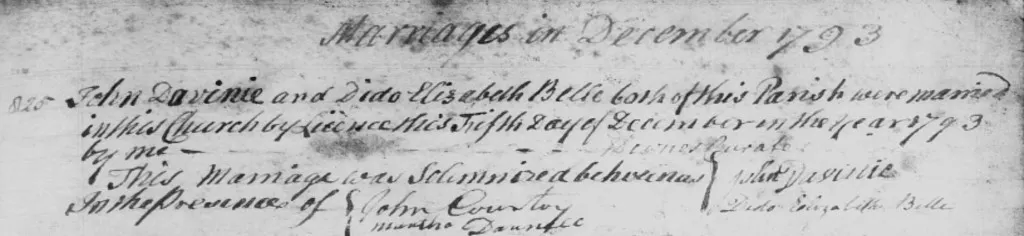 Marriages in December 1793
825 John Davinie and Dido Elizabeth Belle both of this Parish were married
in this Church by Licence this Fifth Day of December in the Year 1793
by me Curate
This Marriage was Solemnized between us { John Davinie
In the Presence of { John Coventry Dido Elizabeth Belle
Martha Darnford